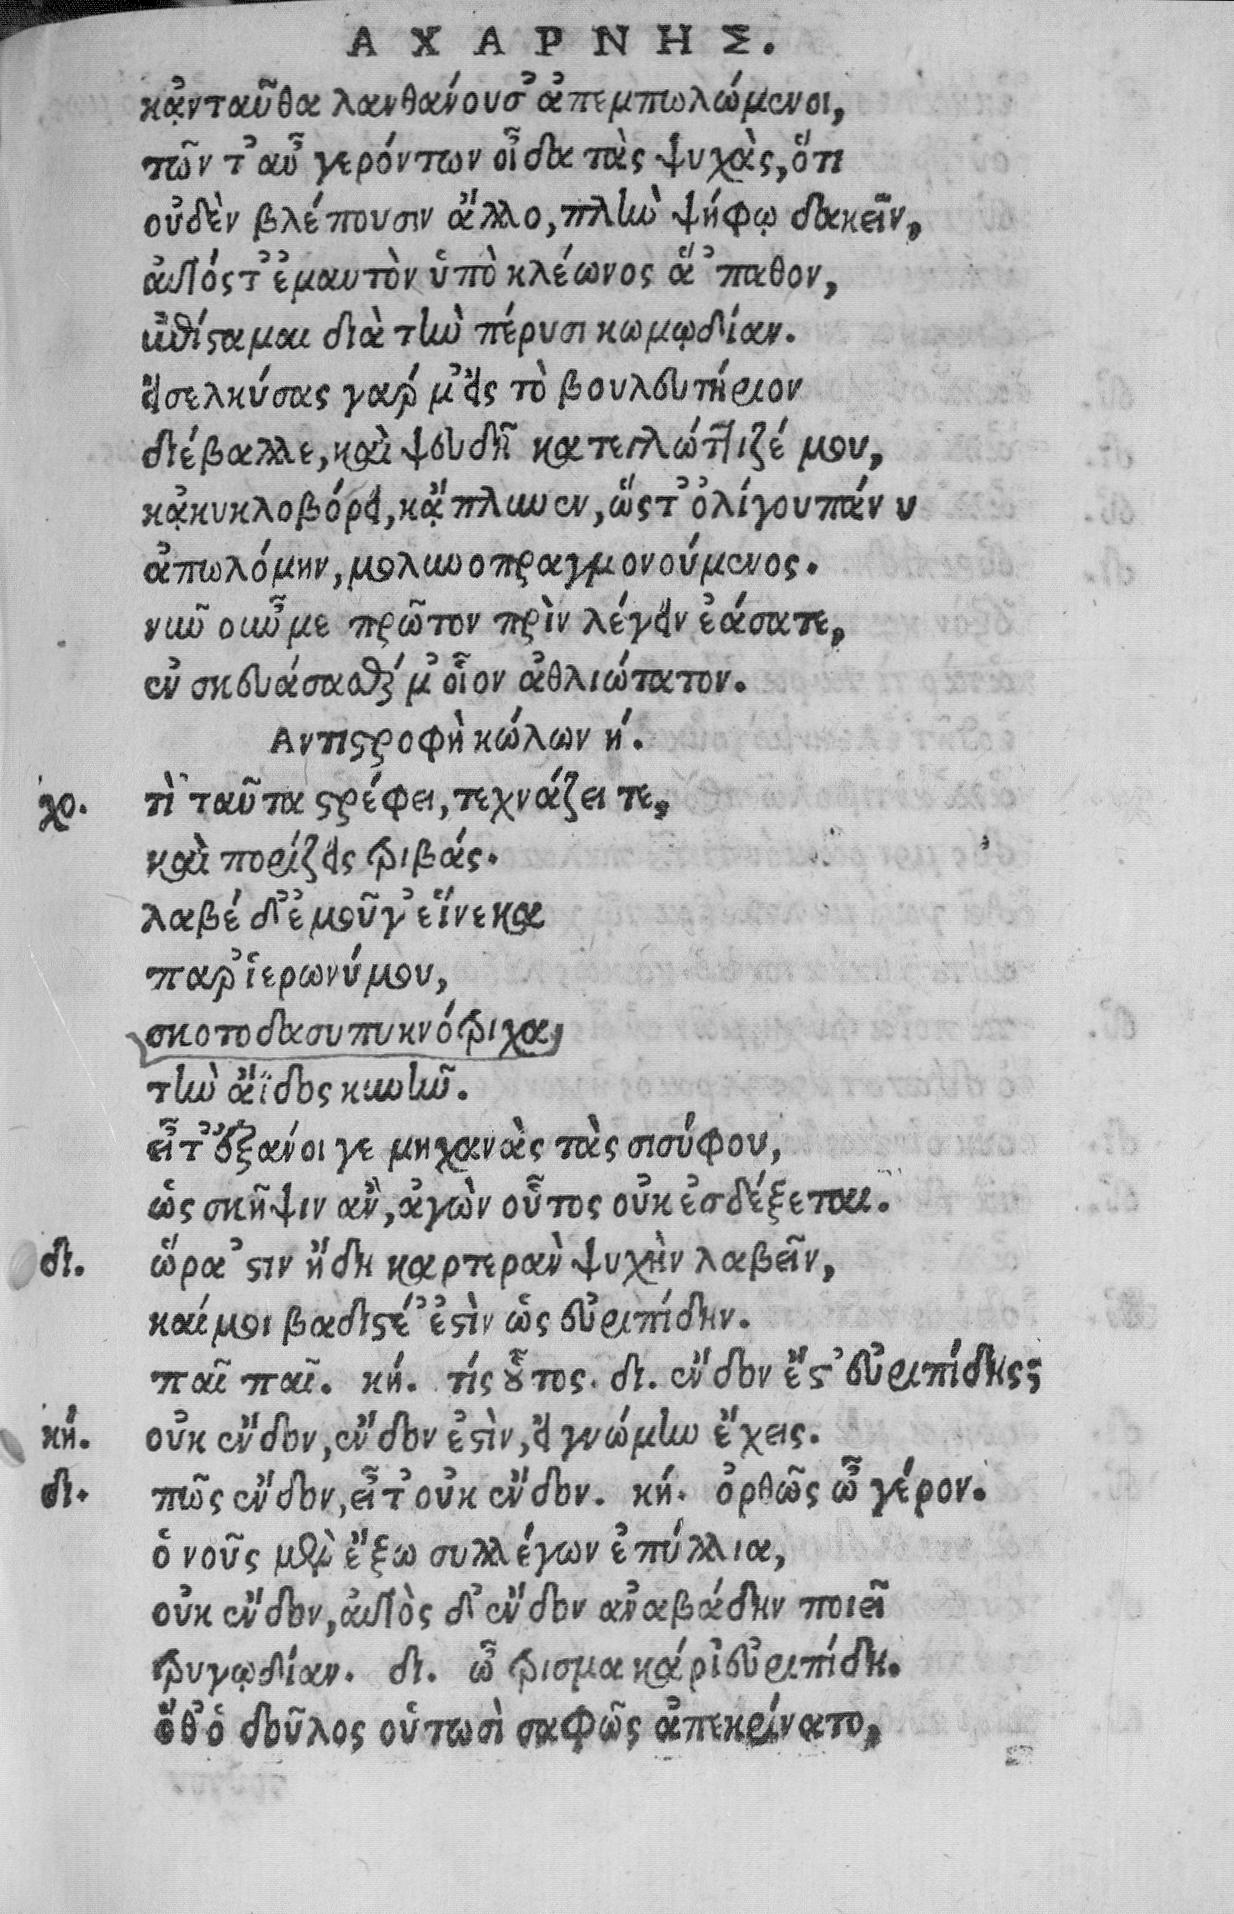 ΑΧΑΡΝΗΣ.
κᾀνταῦθα λανθάνουσ᾽ ἀπεμπωλώμενοι,
τῶν τ᾽ αὖ γερόντων οἶδα τὰς ψυχὰς, ὅτι
οὐδὲν βλέπουσιν ἄλλο, πλὴν ψήφῳ δακεῖν,
αὐτός τ᾽ ἐμαυτὸν ὑπὸ κλέωνος ἅ᾽ παθον,
ἐπίσταμαι διὰ τὴν πέρυσι κωμῳδίαν.
εἰσελκύσας γάρ μ᾽ εἰς τὸ βουλευτήριον
διέβαλλε, καὶ ψευδῆ κατεγλώττιζέ μου,
κᾀκυκλοβόρει, κᾄπλυνεν, ὥστ᾽ ὀλίγου πάνυ
ἀπωλόμην, μολυνοπραγμονούμενος.
νῦν οὖν με πρῶτον πρὶν λέγειν ἐάσατε,
ἐν σκευάσασθέ μ᾽ οἷον ἀθλιώτατον.
Αντιστροφὴ κώλων ή.
χο. τὶ ταῦτα στρέφει, τεχνάζει τε,
καὶ πορίζεις τριβάς.
λαβέ δ᾽ ἐμοῦ γ᾽ εἵνεκα
παρ᾽ ἱερωνύμου,
σκοτοδασυπυκνότριχα,
τὴν ἄϊδος κυνῆν.
εἶτ᾽ ἐξανοίγε μηχανὰς τὰς σισύφου,
ὡς σκῆψιν ἂν, ἁγὼν οὗτος οὐκ ἐσδέξεται.
δι. ὥρα᾽ στιν ἤδη καρτερὰν ψυχὴν λαβεῖν,
καί μοι βαδιστέ᾽ ἐστὶν ὡς εὐριπίδην.
παῖ παῖ. κή. τίς οὗτος. δι. ἔνδον ἔστ᾽ εὐριπίδης;
κή. οὐκ ἔνδον, ἔνδον ἐστὶν, εἰ γνώμην ἔχεις.
δι. πῶς ἔνδον, εἶτ᾽ οὐκ ἔνδον. κή. ὀρθῶς ὦ γέρον.
ὁ νοῦς μὲν ἔξω συλλέγων ἐπύλλια,
οὐκ ἔνδον, αὐτὸς δ᾽ ἔνδον ἀναβάδην ποιεῖ
τρυγῳδίαν. δι. ὦ τρισμακάρι᾽ εὐριπίδη.
ὅθ᾽ ὁ δοῦλος οὑτωσὶ σαφῶς ἀπεκρίνατο,